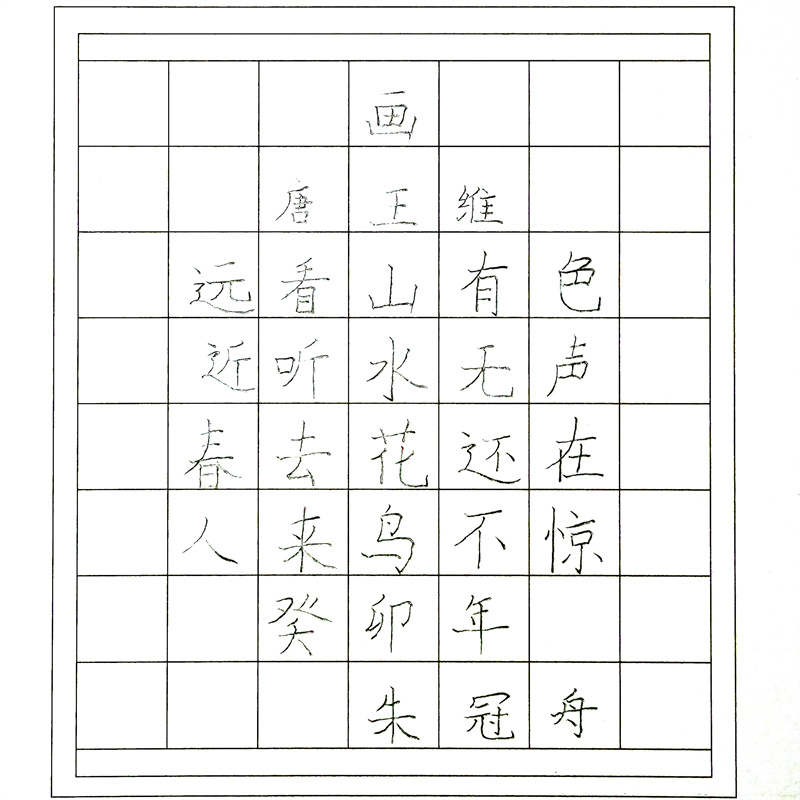 画
唐王维
远看山有色
近听水无声
春去花还在
人来鸟不惊
癸卯年
朱冠舟